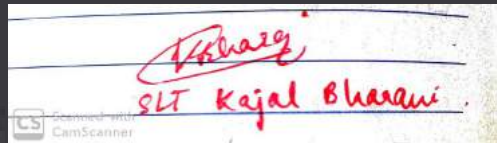 SLT Kajal Bharani.
CS Scanned with
CamScanner